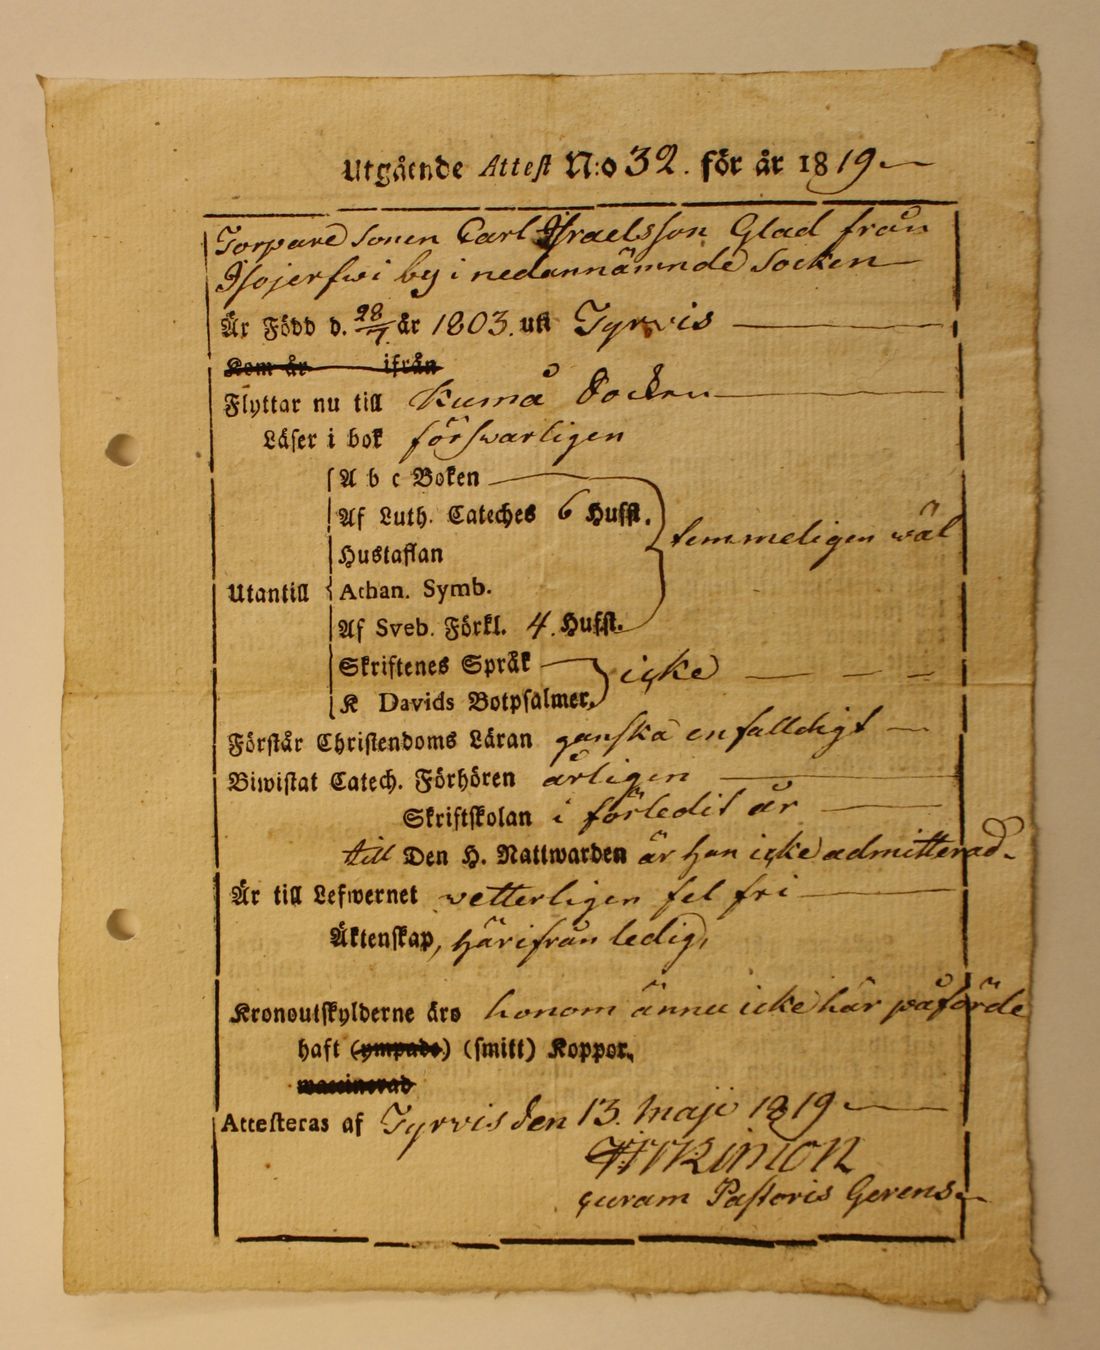 Utgående Attest N:o 32. för år 1819
Torpare Sonen Carl Israelsson Glad från
Isojerfwi by i nedannämnde Socken
Är Född d. 28/7 år 1803. uti Tyrvis
Kom år ifrån
Flyttar nu till Kumå Socken
Läser i bok förswarligen
A b c Boken
Af Luth. Cateches 6 Hufst.
temmeligen wäl
Hustaflan
Utantill Athan. Symb.
Af Sveb. Förkl. 4. Hufst.
Skriftenes Språk
icke
K Davids Botpsalmer.
Förstår Christendoms Läran ganska enfalldigt
Biwistat Catech. Förhören årligen
Skriftskolan i förledit år
till Den H. Nattwarden är han icke admitterad.
Är till Lefwernet vetterligen fel fri
Äktenskap, härifrån ledig,
Kronoutskylderne äro honom ännu icke här påförde
haft (ympade) (smitt) Koppor.
waccinerad
Attesteras af Tyrvis den 13. Maji 1819
curam Pastoris Gerens